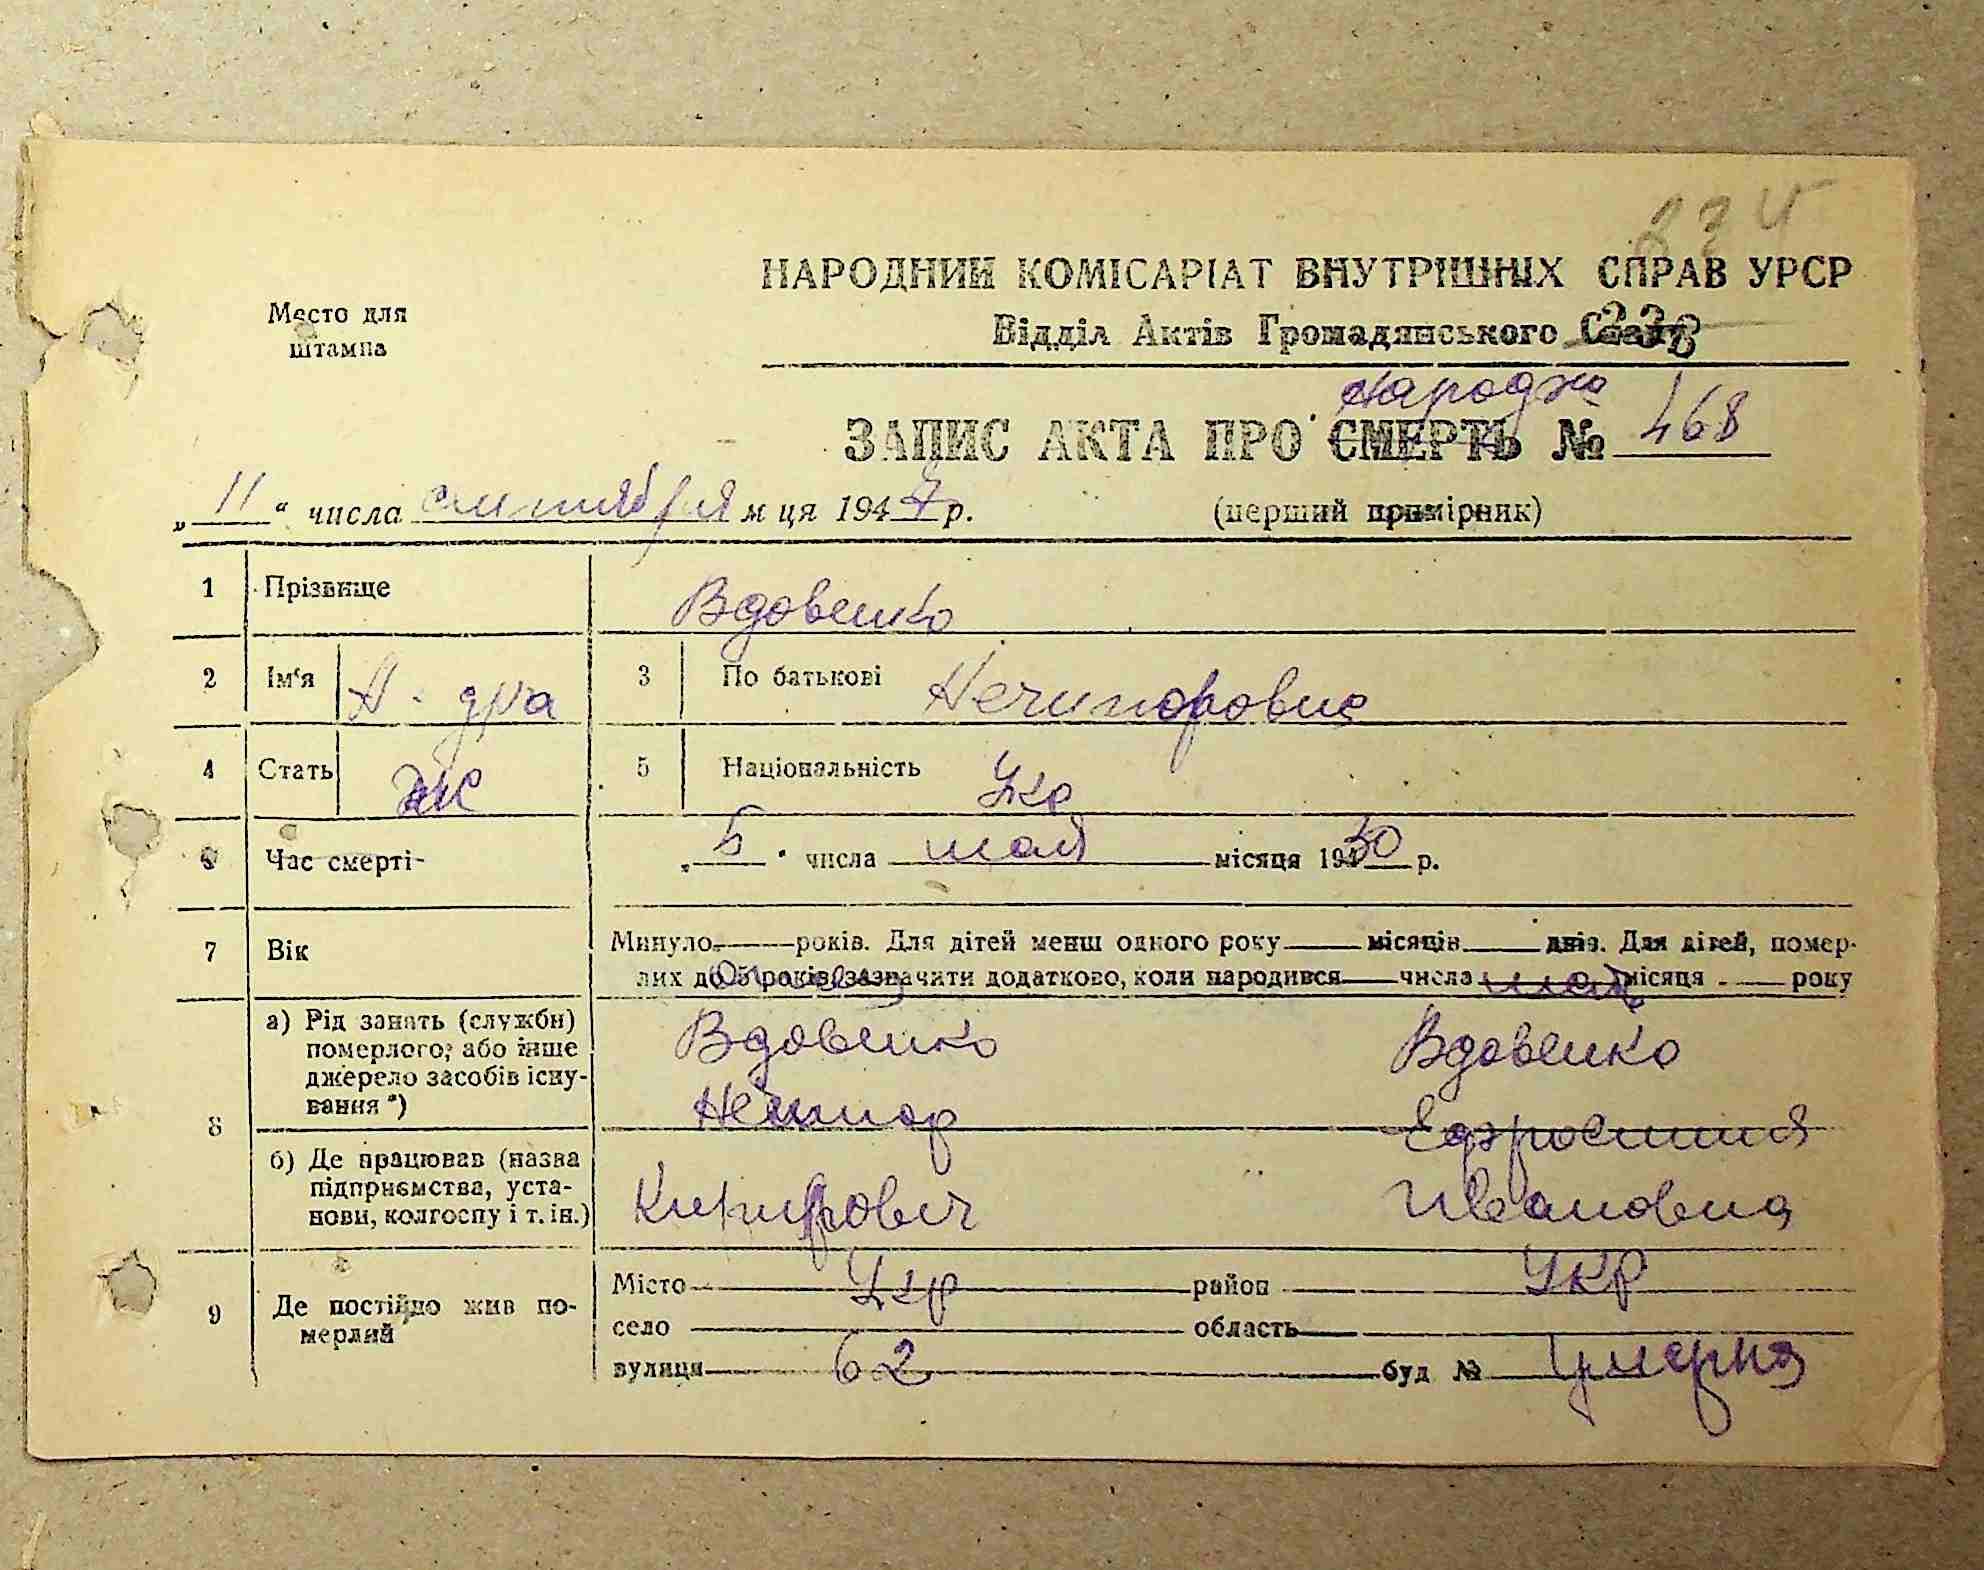 834
НАРОДНИЙ КОМІСАРІАТ ВНУТРІШНІХ СПРАВ УРСР
Место для штампа
Відділ Актів Громадянського Стану 238
народж
ЗАПИС АКТА ПРО СМЕРТЬ № 468
„11“ числа сентября м ця 1947 р. (перший примірник)
1 Прізвище Вдовенко
2 Ім‘я А-дра 3 По батькові Нечипоровна
4 Стать Ж 5 Національність Укр
Час смерті „5“ числа мая місяця 19430 р.
7 Вік Минуло — років. Для дітей менш одного року — місяців — днів. Для дітей, помер-
лих до 5 років, зазначити додатково, коли народився — числа — місяця — року
мать
8 а) Рід занять (служби) померлого; або інше джерело засобів існування *)
Вдовенко Вдовенко
Ефросиния
б) Де працював (назва підприємства, установи, колгоспу і т. ін.)
Ивановна
9 Де постійно жив померлий
Місто Укр район Укр
село область
вулиця 62 буд №